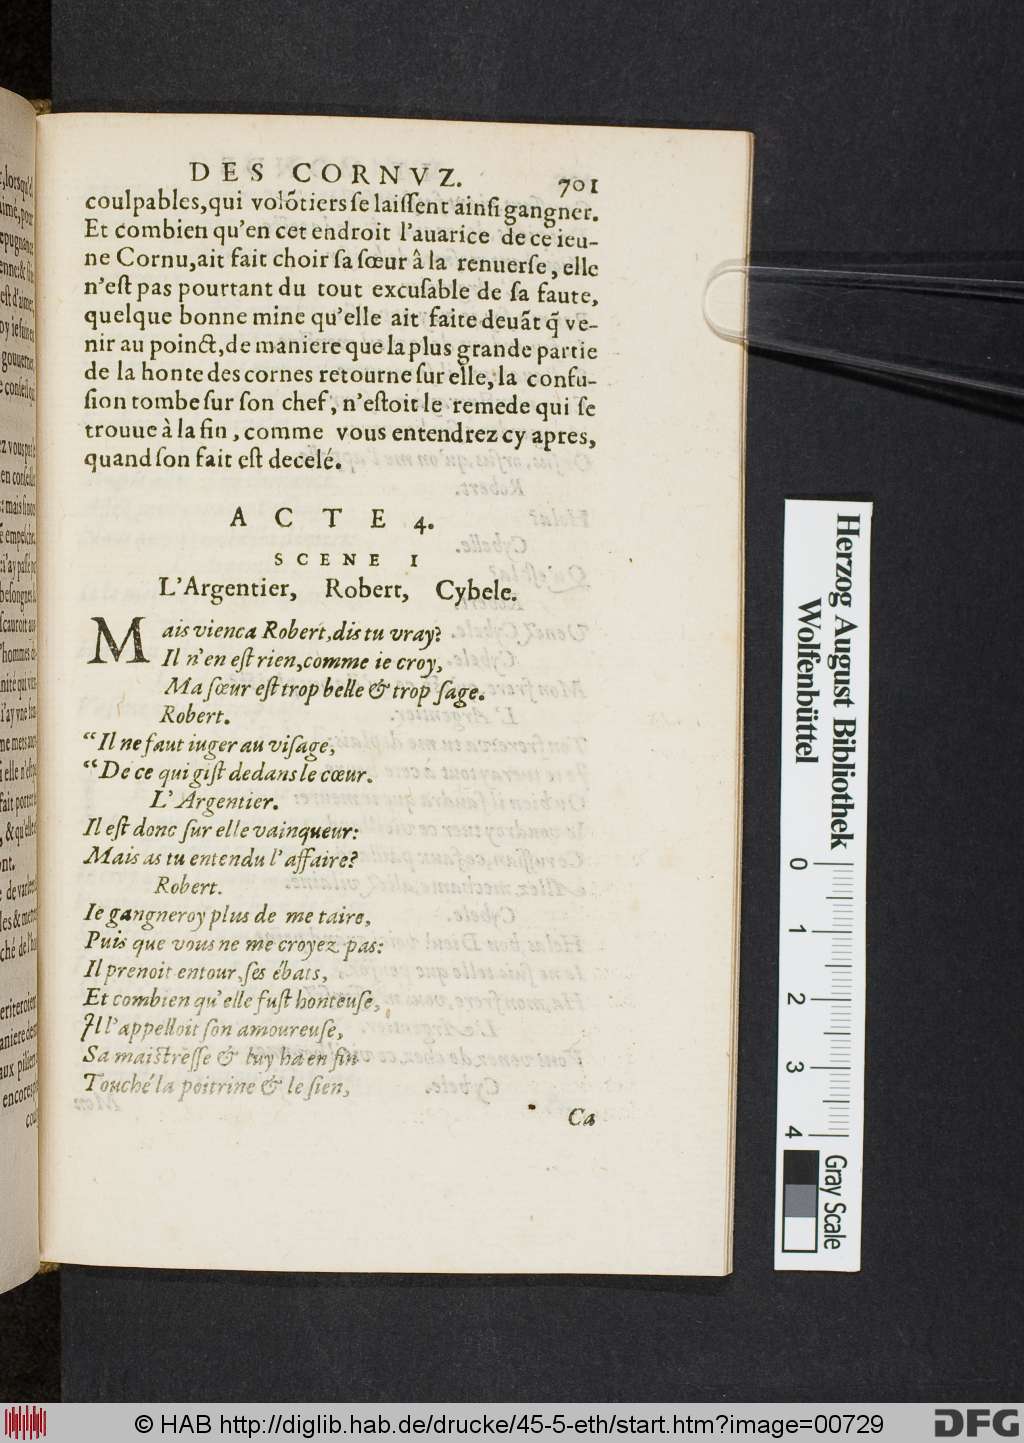 DES CORNVZ.
701
coulpables, qui volõtiers se laissent ainsi gangner.
Et combien qu'en cet endroit l'auarice de ce ieu-
ne Cornu, ait fait choir sa sœur â la renuerse, elle
n'est pas pourtant du tout excusable de sa faute,
quelque bonne mine qu'elle ait faite deuãt q̃ ve-
nir au poinct, de maniere que la plus grande partie
de la honte des cornes retourne sur elle, la confu-
sion tombe sur son chef, n'estoit le remede qui se
trouue à la fin, comme vous entendrez cy apres,
quand son fait est decelé.
ACTE 4.
SCENE I
L'Argentier, Robert, Cybele.
Mais vienca Robert, dis tu vray?
Il n'en est rien, comme ie croy,
Ma sœur est trop belle & trop sage.
Robert.
“Il ne faut iuger au visage,
“De ce qui gist dedans le cœur.
L'Argentier.
Il est donc sur elle vainqueur:
Mais as tu entendu l'affaire?
Robert.
Ie gangneroy plus de me taire,
Puis que vous ne me croyez pas:
Il prenoit entour, ses ébats,
Et combien qu'elle fust honteuse,
Il l'appelloit son amoureuse,
Sa maistresse & luy ha en fin
Touché la poitrine & le sien,
Ca
Herzog August Bibliothek
Wolfenbüttel
0
1
2
3
4
Gray Scale
© HAB http://diglib.hab.de/drucke/45-5-eth/start.htm?image=00729
DFG